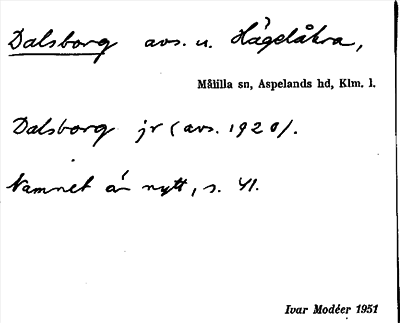 Dalsborg avs. u. Hägelåkra,
Målilla sn, Aspelands hd, Klm. l.
Dalsborg jr (avs. 1920).
Namnet är nytt, s. 41.
Ivar Modéer 1951